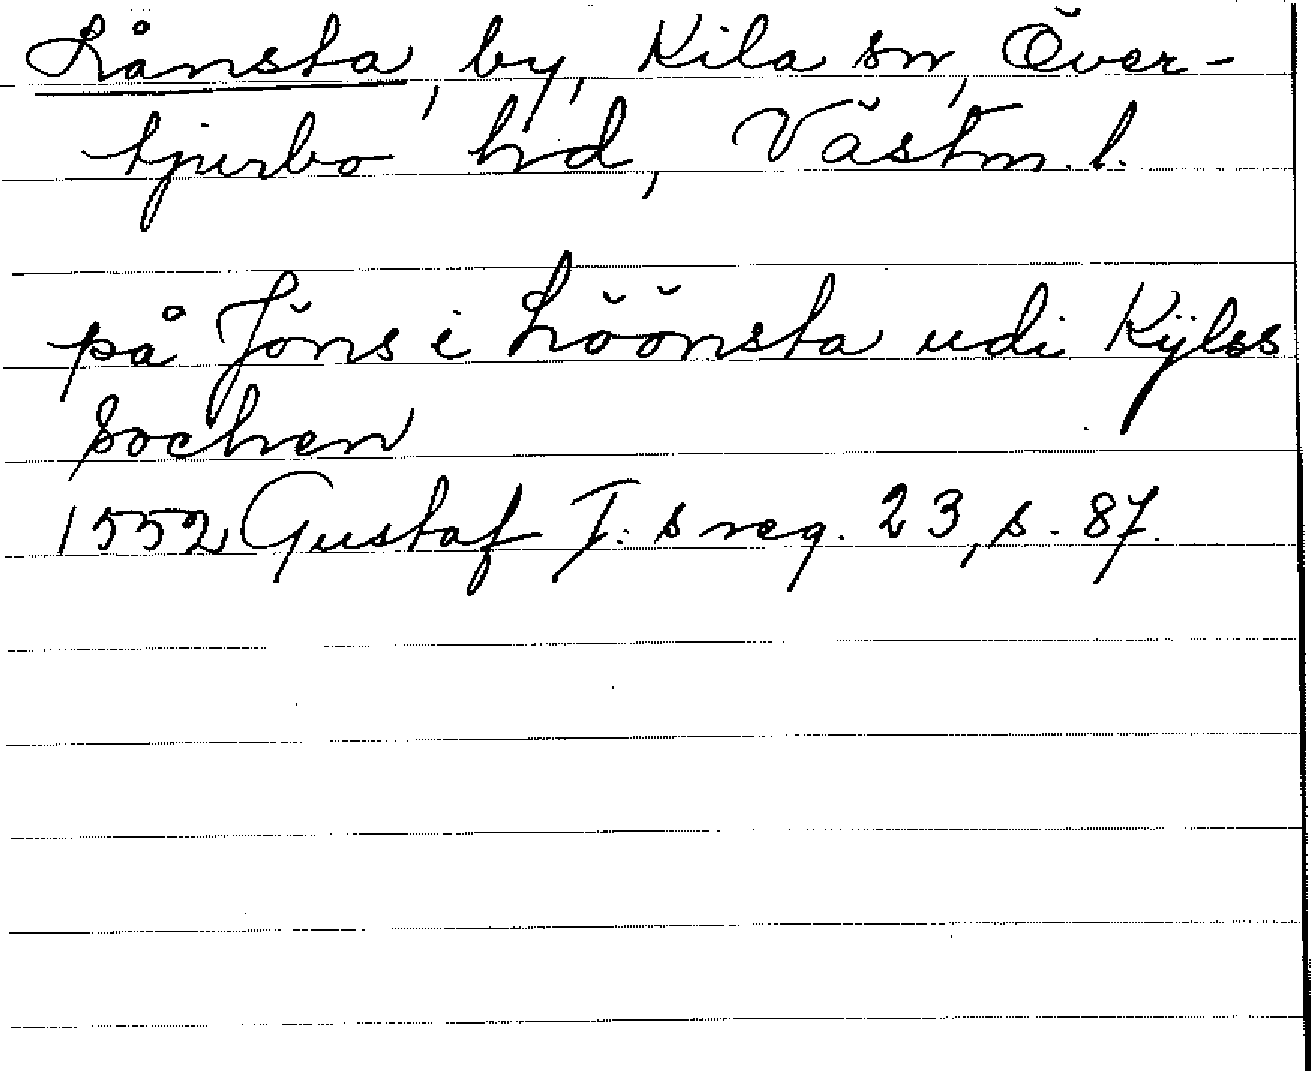 Lånsta, by, Kila sn, Över-
tjurbo hd, Västm. l.
på Jöns i Löönsta udi Kÿlss
sochen
1552 Gustaf I:s reg. 23, s. 87.